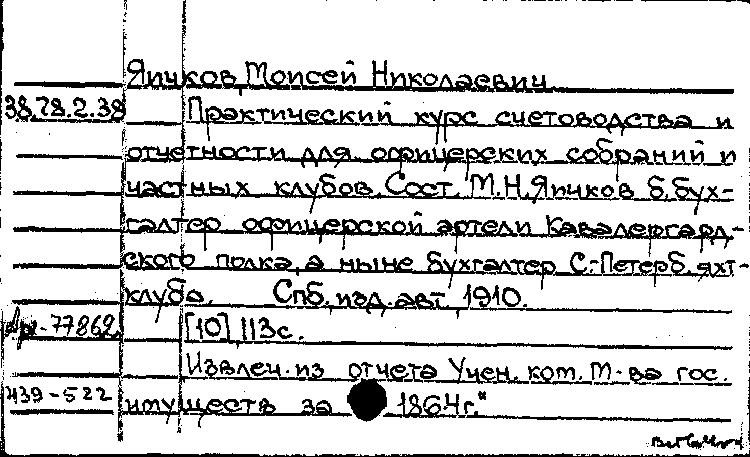 Япчков, Моисей Николаевич
38.78.2.38 Практический курс счетоводства и
отчетности для офицерских собраний и
частных клубов. Сост. М.Н.Япчков б. бух-
галтер офицерской артели Кавалергард-
ского полка, а ныне бухгалтер С.-Петерб. яхт-
клуба. Спб. изд. авт. 1910.
[10], 113 с.
Извлеч. из отчета Учен. ком. М-ва гос.
439-522 имуществ за 1864г."